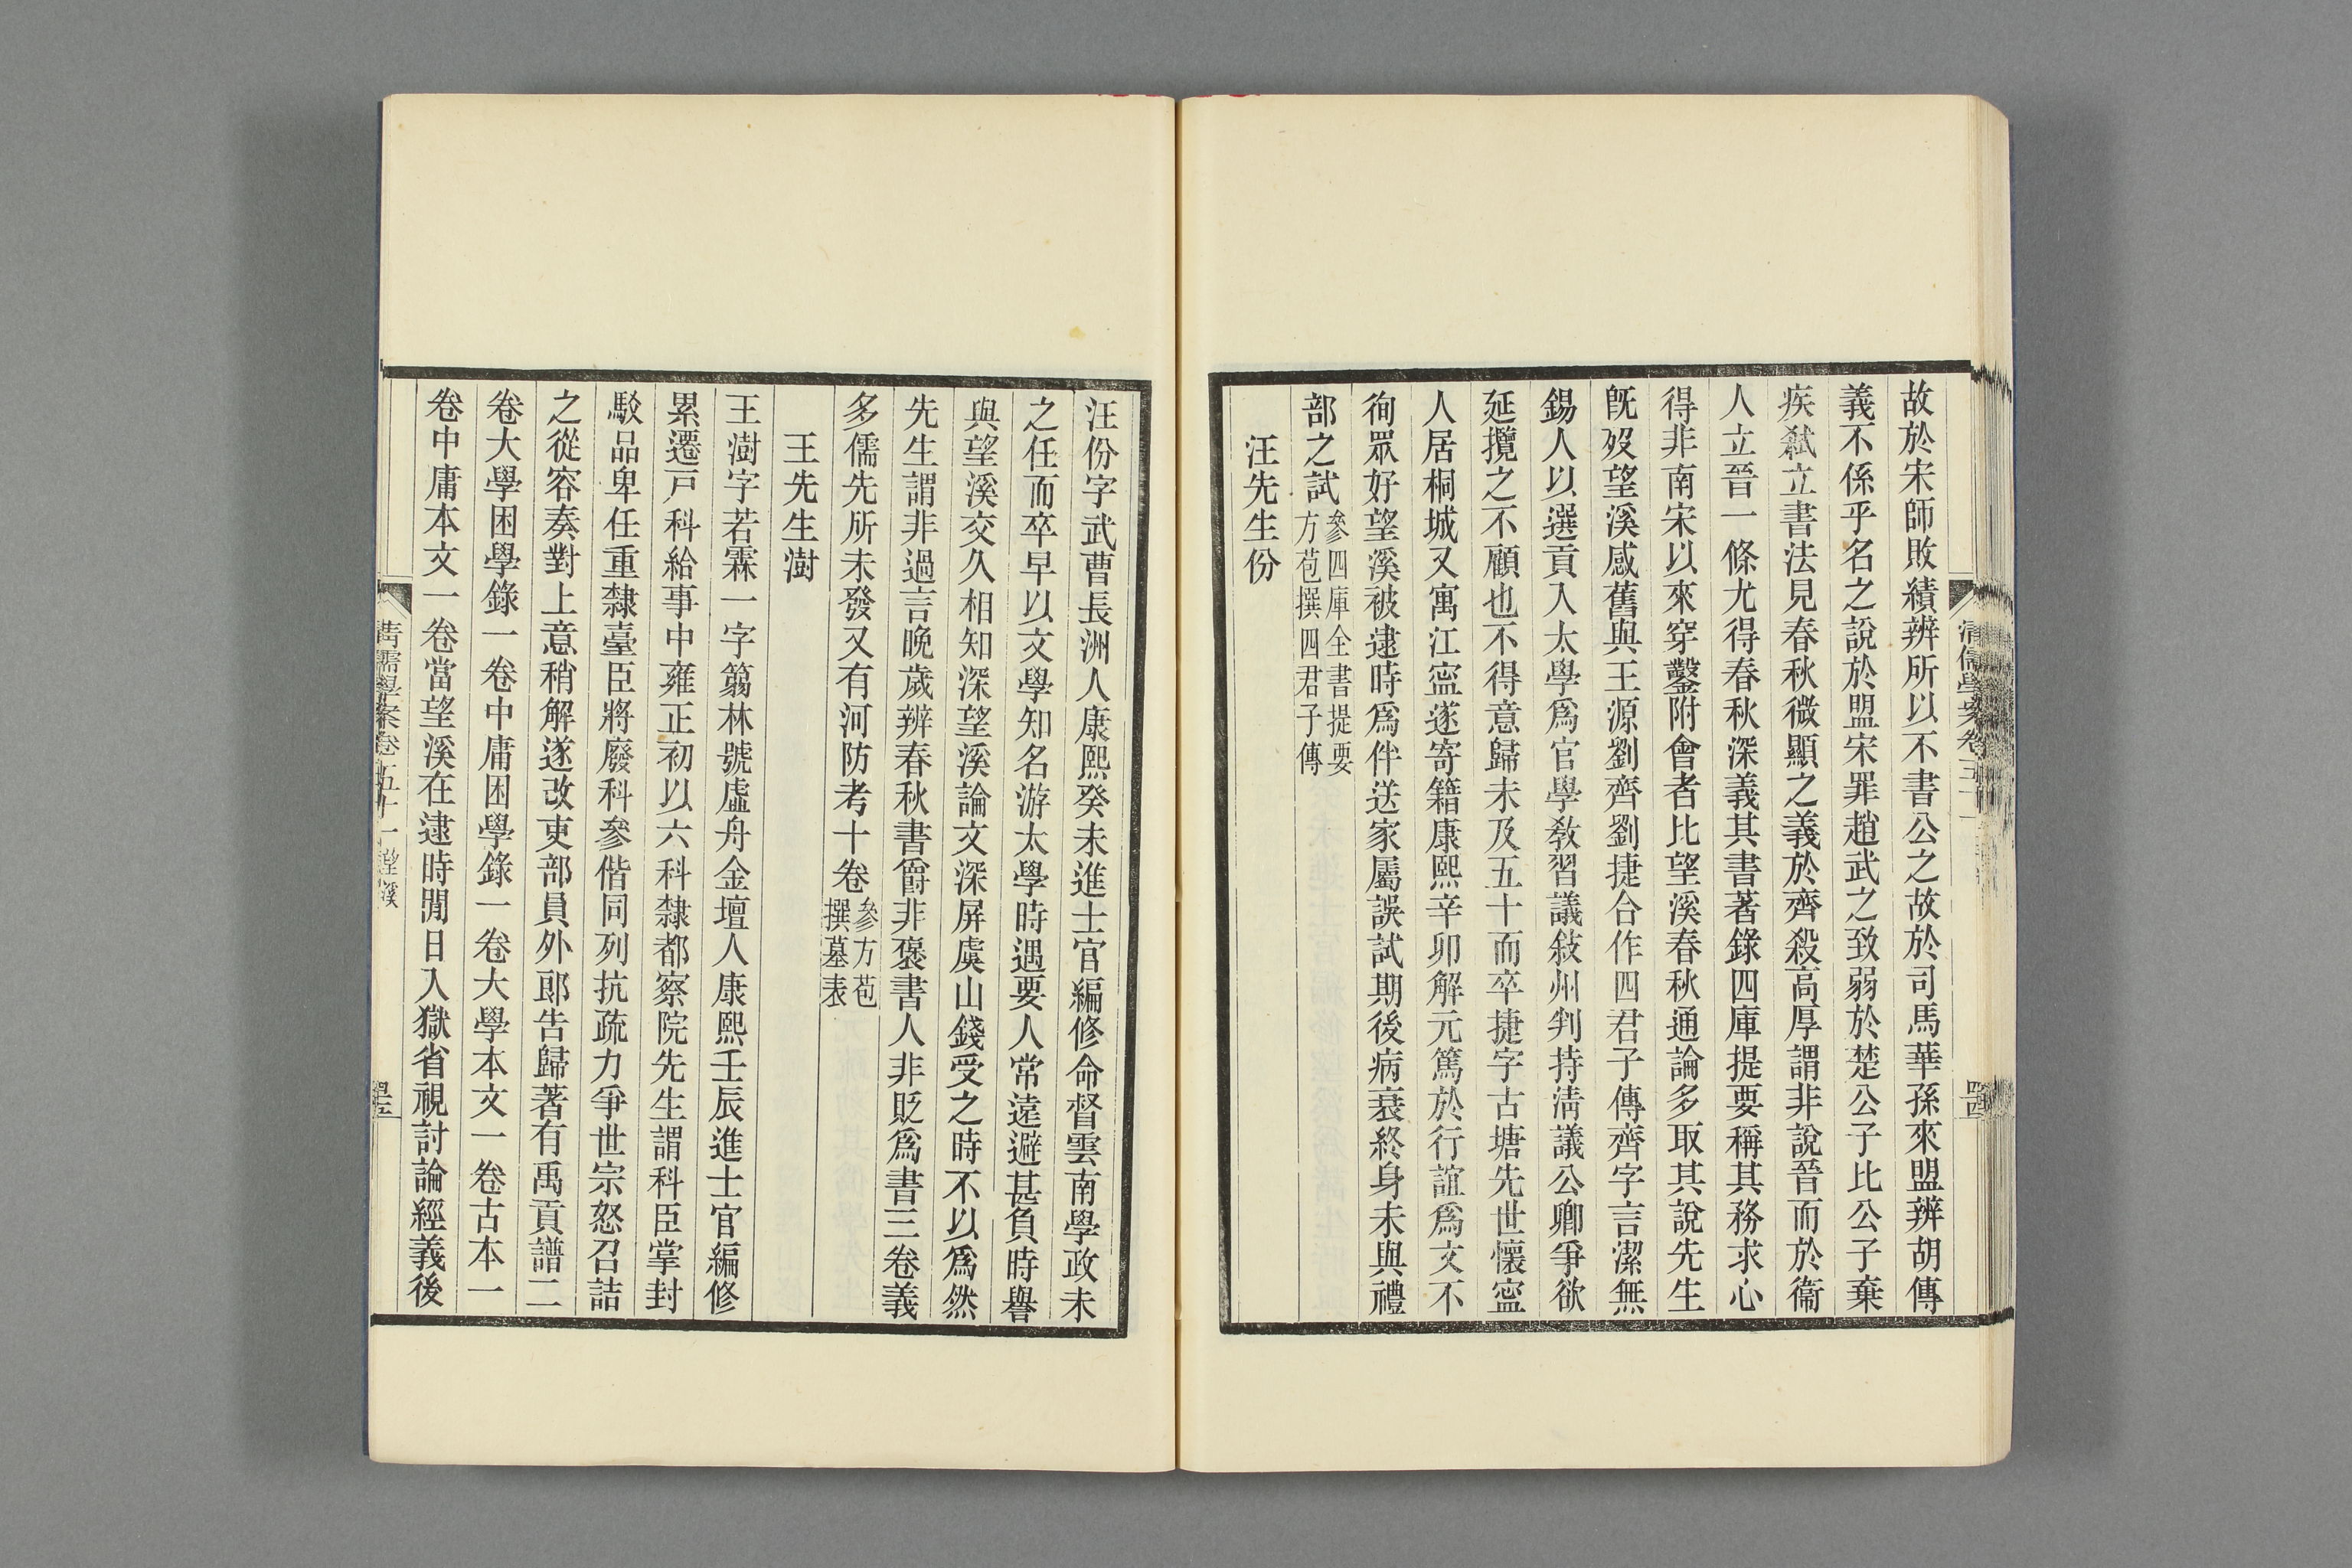 故於宋師敗績辨所以不書公之故於司馬華孫來盟辨胡傳
義不係乎名之說於盟宋罪趙武之致弱於楚公子比公子棄
疾弒立書法見春秋微顯之義於齊殺高厚謂非說晉而於衞
人立晉一條尤得春秋深義其書著錄四庫提要稱其務求心
得非南宋以來穿鑿附會者比望溪春秋通論多取其說先生
旣歿望溪感舊與王源劉齊劉捷合作四君子傳齊字言潔無
錫人以選貢入太學爲官學敎習議敍州判持淸議公卿爭欲
延攬之不顧也不得意歸未及五十而卒捷字古塘先世懷寍
人居桐城又寓江寍遂寄籍康熙辛卯解元篤於行誼爲文不
徇眾好望溪被逮時爲伴送家屬誤試期後病衰終身未與禮
部之試參四庫全書提要
方苞撰四君子傳
汪先生份
清儒學案卷五十一
四四
汪份字武曹長洲人康熙癸未進士官編修命督雲南學政未
之任而卒早以文學知名游太學時遇要人常遠避甚負時譽
與望溪交久相知深望溪論文深屏虞山錢受之時不以爲然
先生謂非過言晚歲辨春秋書爵非褒書人非貶爲書三卷義
多儒先所未發又有河防考十卷參方苞
撰墓表
王先生澍
王澍字若霖一字篛林號虛舟金壇人康熙壬辰進士官編修
累遷戸科給事中雍正初以六科隸都察院先生謂科臣掌封
駮品卑任重隸臺臣將廢科參偕同列抗疏力爭世宗怒召詰
之從容奏對上意稍解遂改吏部員外郞告歸著有禹貢譜二
卷大學困學錄一卷中庸困學錄一卷大學本文一卷古本一
卷中庸本文一卷當望溪在逮時閒日入獄省視討論經義後
清儒學案卷五十一 望溪